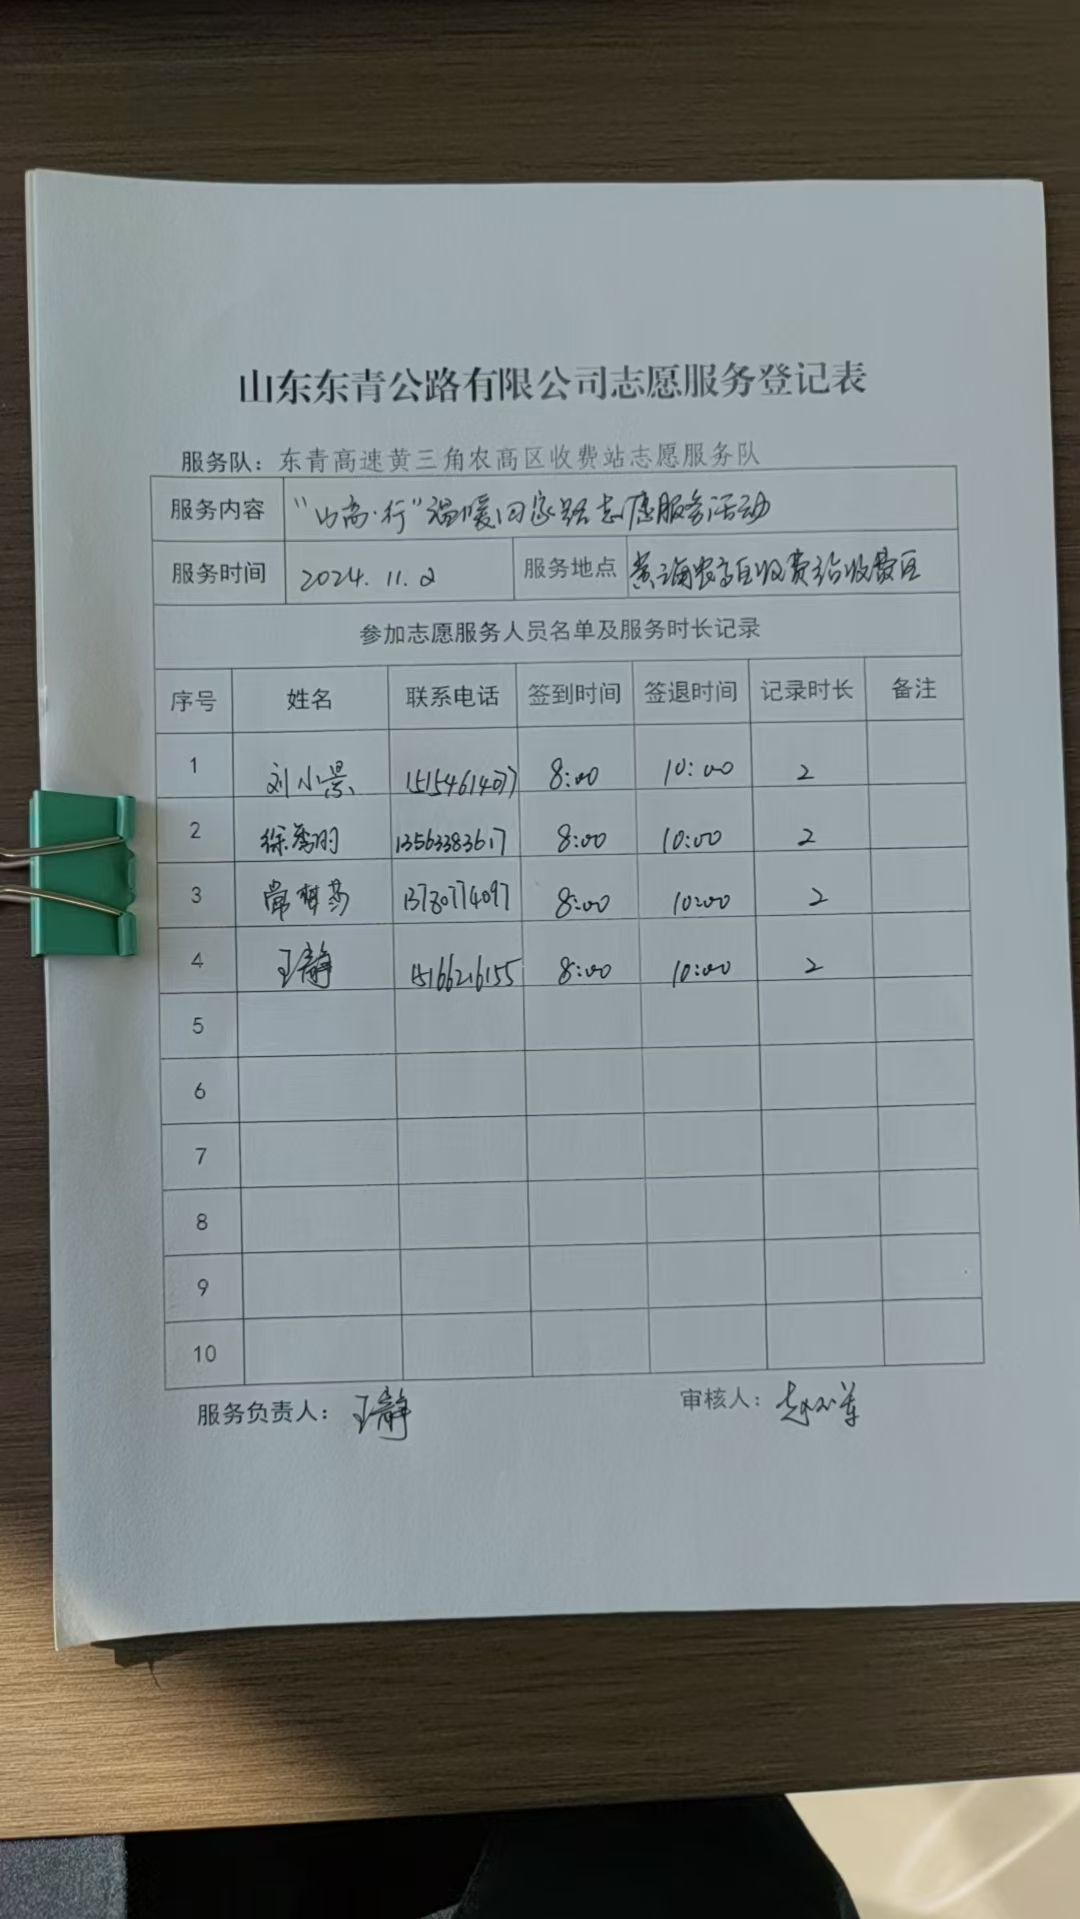 山东东青公路有限公司志愿服务登记表
服务队：东青高速黄三角农高区收费站志愿服务队
服务内容 “山高·行”温暖回家路志愿服务活动
服务时间 2024.11.2 服务地点 黄三角农高区收费站收费区
参加志愿服务人员名单及服务时长记录
序号 姓名 联系电话 签到时间 签退时间 记录时长 备注
1 刘小景 15154614077 8:00 10:00 2
2 徐秀明 13563383617 8:00 10:00 2
3 常 13780774097 8:00 10:00 2
4 王静 15166216155 8:00 10:00 2
5
6
7
8
9
10
服务负责人：王静 审核人：赵